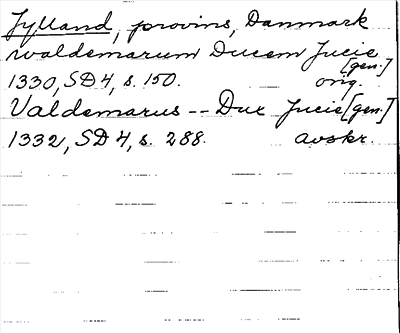 Jylland, provins, Danmark
Waldemarum Ducem Jucie
[gen.]
1330, SD 4, s. 150. orig.
Valdemarus -- Dux Jucie [gen.]
1332, SD 4, s. 288. avskr.